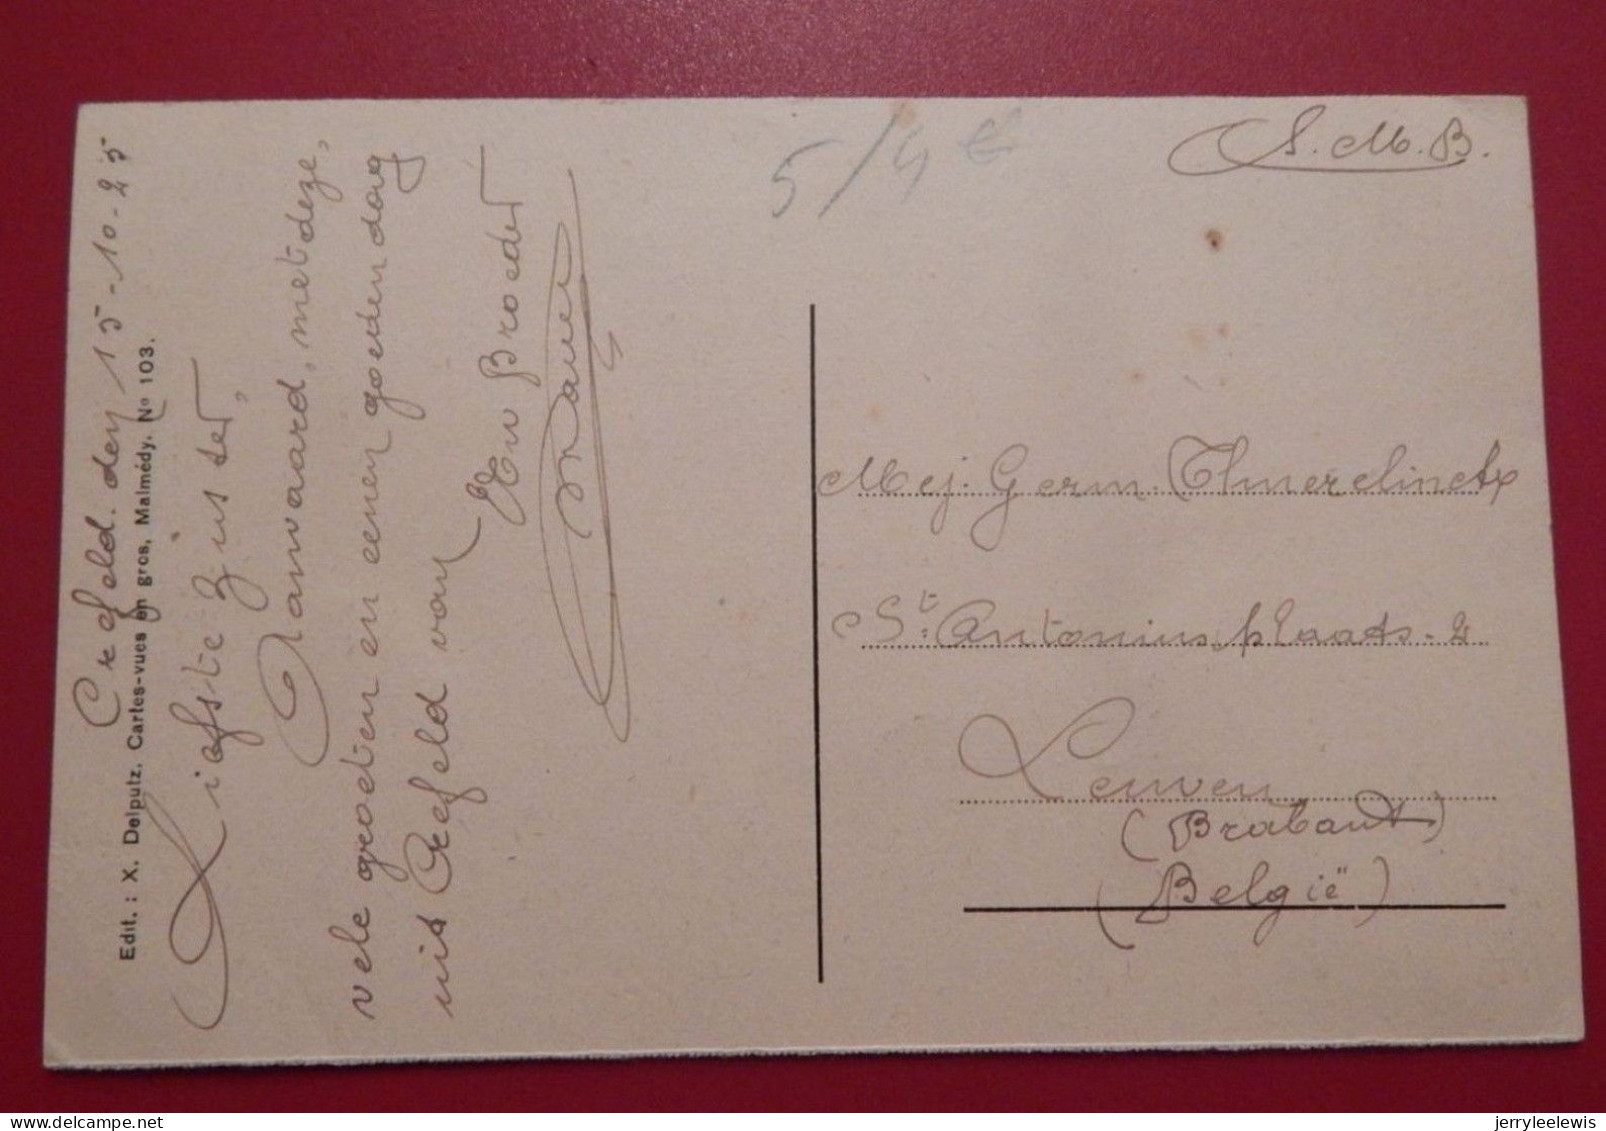 Crefeld. den 15-10-25
Liefste Zuster,
Aanvaard, met deze,
vele groeten en eenen goeden dag
uit Crefeld van
Uw Broeder
Edit. : X. Delputz, Cartes-vues en gros, Malmédy. Nº 103.
5/4 €
S. M. B.
Mej. Germ.
St. Antonius plaats - 2
Leuven
(Brabant)
(België)
delcampe.net
jerryleelewis